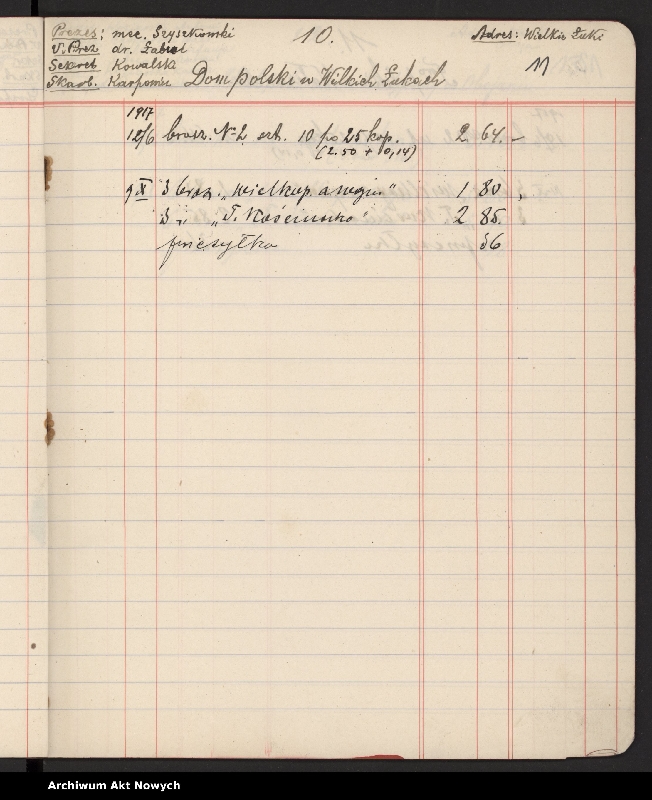 Prezes; mec. Szyszkowski 10. Adres: Wielkie Łuki
V. Prez dr. Łabud
Sekret Kowalska 11
Skarb. Karpowicz Dom polski w Wilkich Łukach
1917
12/6 brosz. № 2 erh. 10 po 25 kop. 2 64. –
(2.50 + 0,14)
9 X 3 brosz. „Wielkop. a 1 80 ,
3 „ „T. Kościuszko" 2 85.
przesyłka 56
Archiwum Akt Nowych